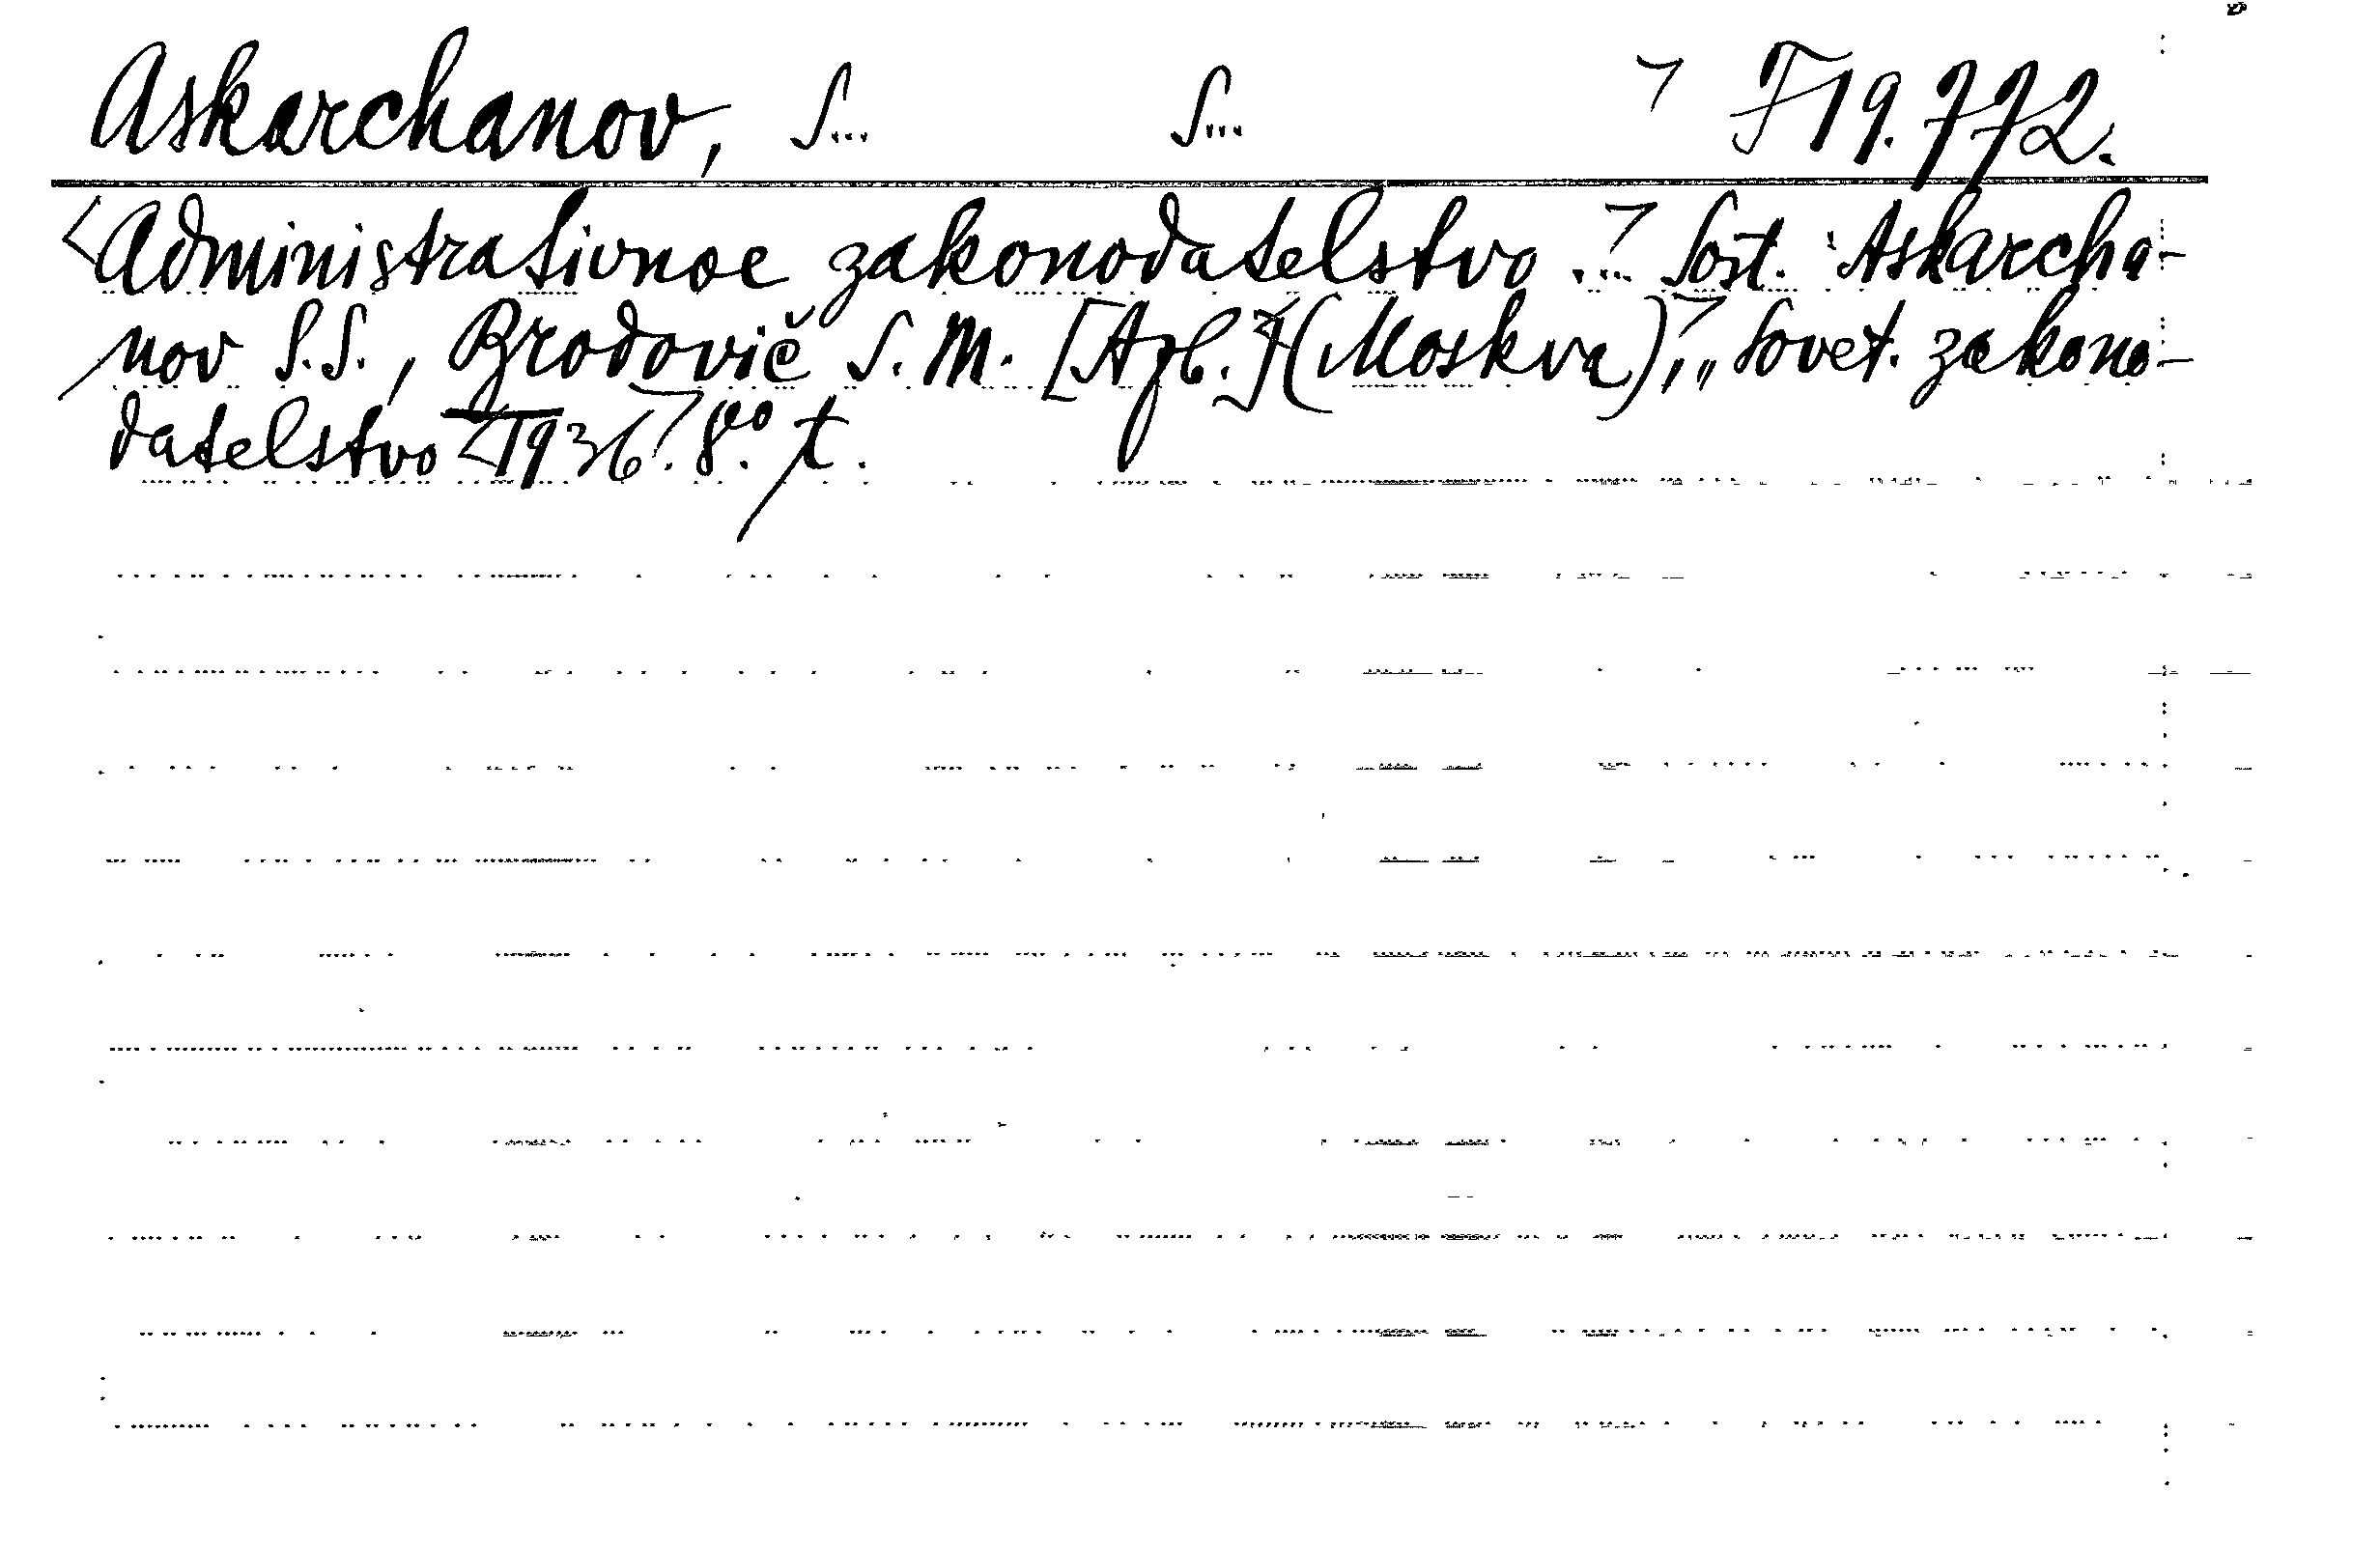 Askarchanov, S... S... F 19.772.
<Administrativnoe zakonodatelstvo ...> Sost. Askarcha-
nov S.S., Brodovič S. M. (Moskva), „Sovet. zakono-
datelstvo <1936>. 8º. t.